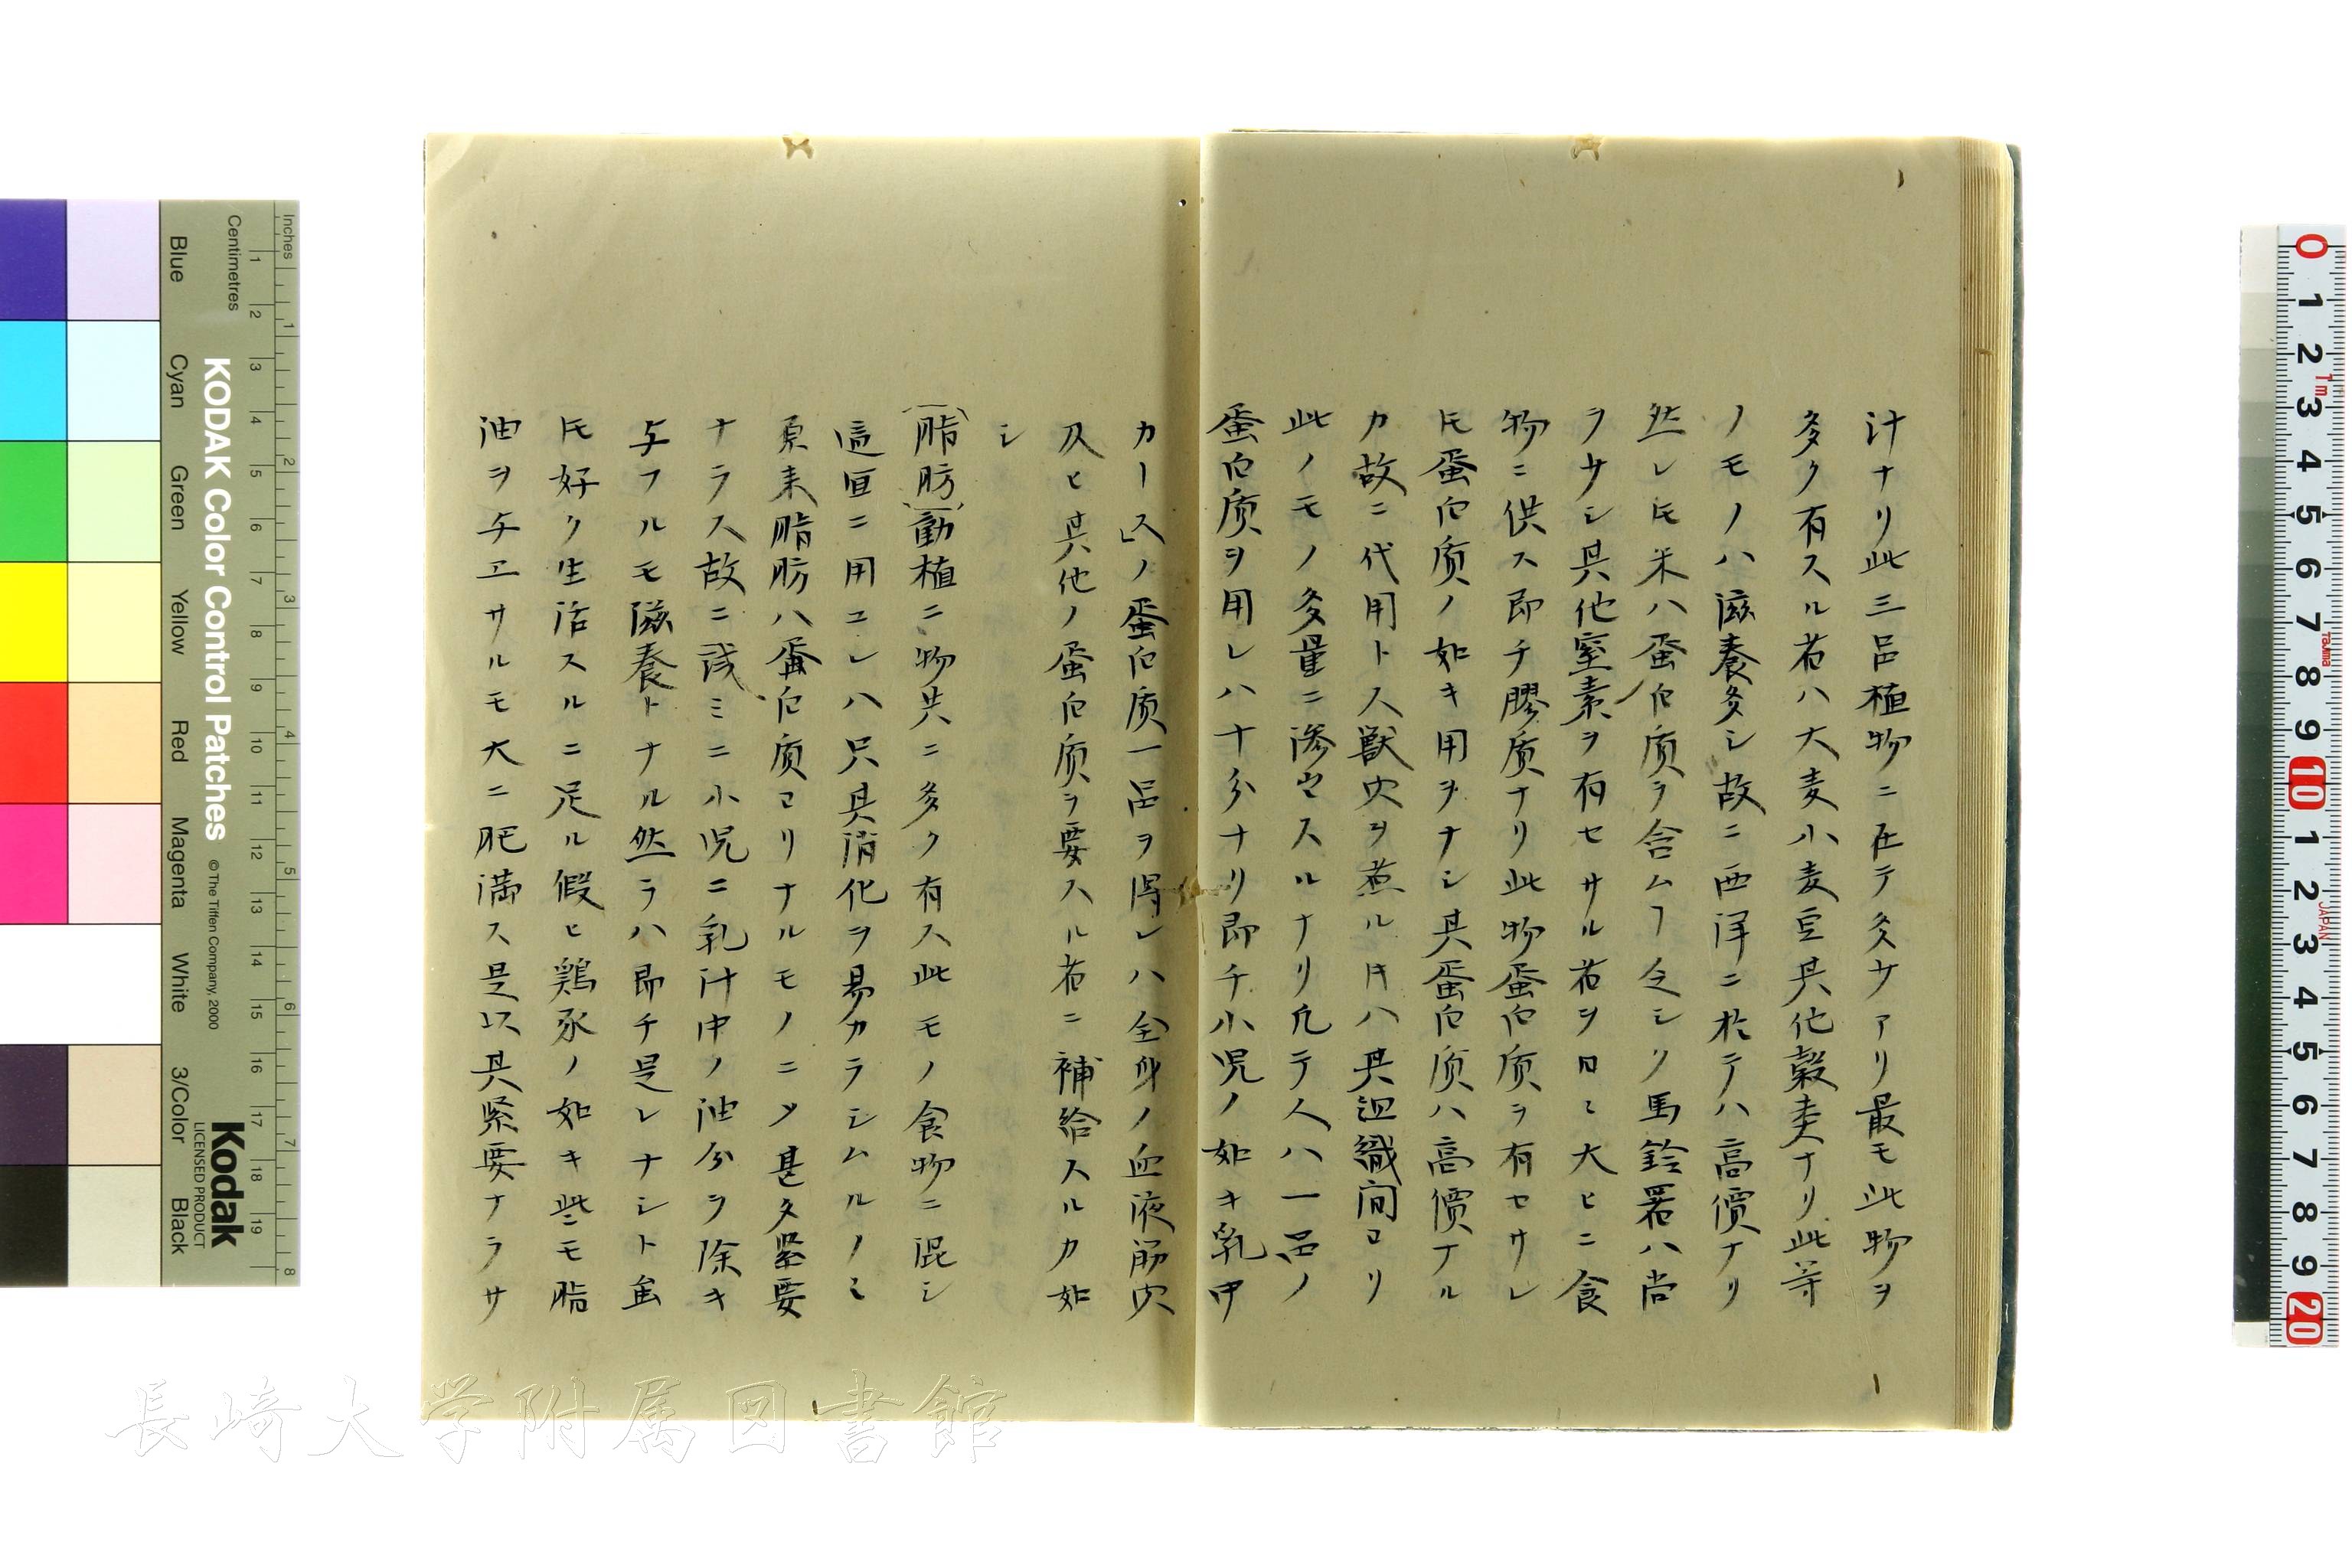 汁ナリ此三品植物ニ在テ多少アリ最モ此物ヲ
多ク有スル者ハ大麦小麦豆其他穀類ナリ此等
ノモノハ滋養多シ故ニ西洋ニ於テハ高價ナリ
然レ𪜈米ハ蛋白质ヲ含ムヿ少シ馬鈴薯ハ尚
ヲ少シ其他窒素ヲ有セサル者ヲ日々大ヒニ食
物ニ供ス即チ膠质ナリ此物蛋白质ヲ有セサレ
𪜈蛋白质ノ如キ用ヲナシ其蛋白质ハ高價ナル
カ故ニ代用トス獣肉ヲ煮ル𪜈ハ其洄織间ヨリ
此ノモノ多量ニ滲出スルナリ凡テ人ハ一品ノ
蛋白质ヲ用レハ十分ナリ即チ小児ノ如キ乳中
カース」ノ蛋白质一品ヲ得レハ全身ノ血液筋肉
及ヒ其他ノ蛋白质ヲ要スル者ニ補給スルカ如
シ
(脂肪)動植ニ物共ニ多ク有ス此モノ食物ニ混シ
適宜ニ用ユレハ只其消化ヲ易カラシムルノミ
原来脂肪ハ蛋白质ヨリナルモノニメ甚タ緊要
ナラス故ニ試ミニ小児ニ乳汁中ノ油分ヲ除キ
与フルモ滋養トナル然ラハ即チ是レナシト虽
𪜈好ク生活スルニ足ル假ヒ鶏豕ノ如キ些モ脂
油ヲ与エサルモ大ニ肥満ス是以其緊要ナラサ
KODAK Color Control Patches
© The Tiffen Company, 2000
Kodak
LICENSED PRODUCT
Inches
Centimetres
Blue Cyan Green Yellow Red Magenta White 3/Color Black
長崎大学附属図書館